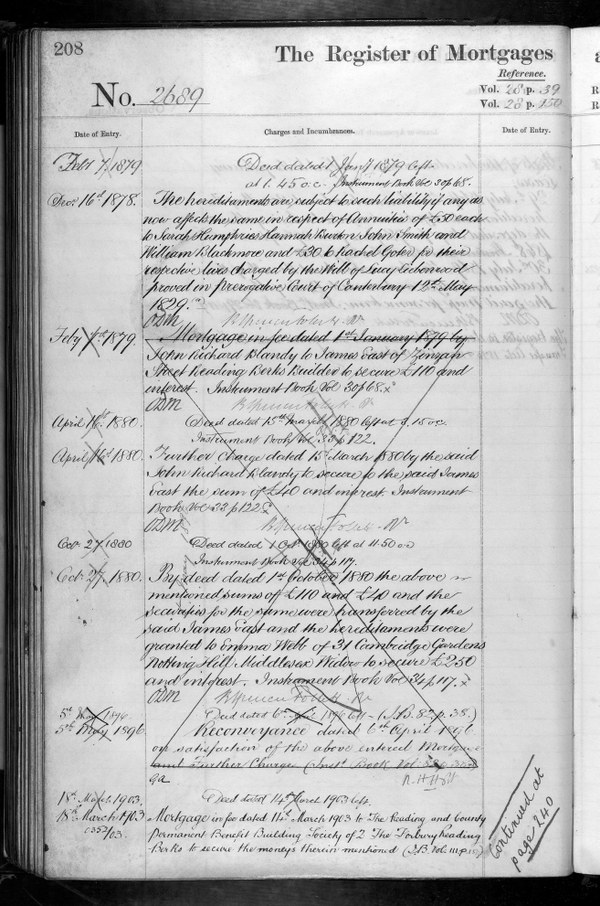 208
The Register of Mortgages
Reference.
No. 2689
Vol. 28 p. 39
Vol. 28 p. 150
Date of Entry.
Charges and Incumbrances.
Date of Entry.
Feby 7 1879
Deed dated 1 Jany 1879 left
at 1.45 o.c. Instrument Book Vol 30 p 68.
Decr. 16th 1878.
The hereditaments are subject to such liability if any as
now affects the same in respect of Annuities of £50 each
to Sarah Humphries Hannah Burton John Smith and
William Blackmore and £30 to Rachel for their
respective lives charged by the Will of Lucy
proved in Prerogative Court of Canterbury 12th May
1829.
Feby 7th 1879
Mortgage in fee dated 1st January 1879 by
John Richard Blandy to James East of Zinzan
Street Reading Berks Builder to secure £110 and
interest. Instrument Book Vol 30 p 68.
April 16th 1880.
Deed dated 15th March 1880 left at
Instrument Book Vol 33 p 122.
April 16th 1880.
Further Charge dated 15 March 1880 by the said
John Richard Blandy to secure to the said James
East the sum of £40 and interest Instrument
Book Vol 33 p 122
Oct 27 1880
Deed dated 1 Oct 1880 left at 11.50 o.c.
Instrument Book Vol 34 p 117.
Oct 27. 1880.
By deed dated 1st October 1880 the above
mentioned sums of £110 and £40 and the
securities for the same were transferred by the
said James East and the hereditaments were
granted to Emma Webb of 31 Cambridge Gardens
Notting Hill Middlesex Widow to secure £250
and interest. Instrument Book Vol 34 p 117.
5th May 1896
Deed dated 6th 1896 left (I.B. 82 p. 38.)
5th May 1896
Reconveyance dated 6th April 1896
on satisfaction of the above entered Mortgage
and Further Charge (Inst Book Vol
R.H. Holt
18th March 1903.
Deed dated 14th March 1903 left.
18th March 1903
Mortgage in fee dated 14th March 1903 to The Reading and County
/03.
Permanent Benefit Building Society of 2 The Forbury Reading
Berks to secure the moneys therein mentioned (I.B. Vol. 111 p.
Continued at
page 240